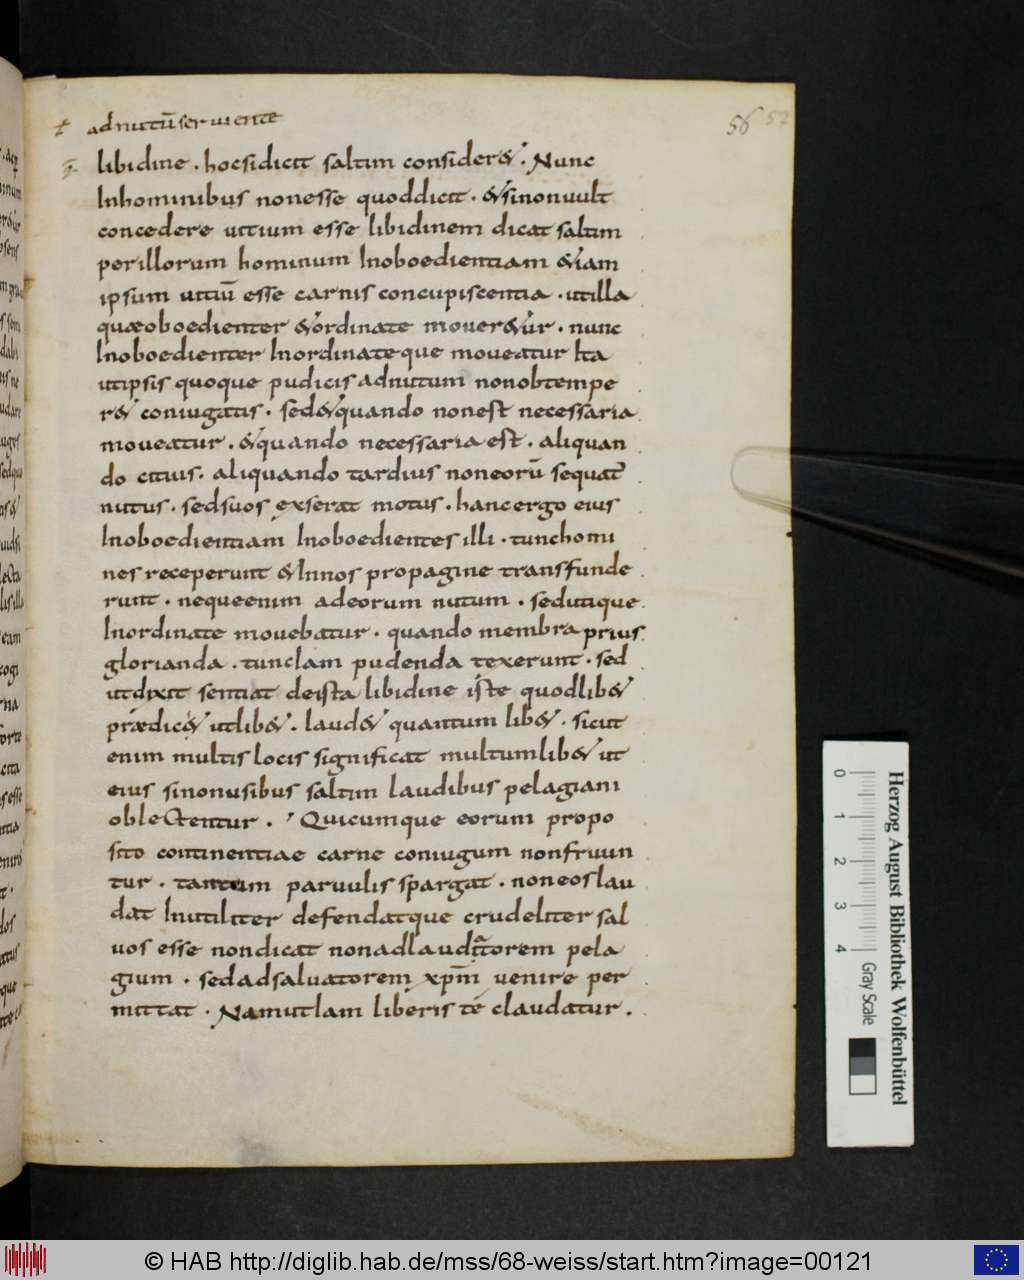 ad nutū seruiente
56 57
libidine . hoc si dicit saltim consider& . Nunc
In hominibus non esse quod dicit . & si non uult
concedere uitium esse libidinem dicat saltim
per illorum hominum Inoboedientiam &iam
ipsum uitiū esse carnis concupiscentia . ut illa
quæ oboedienter & ordinate mouer&ur . nunc
Inoboedienter Inordinateque moueatur Ita
ut ipsis quoque pudicis ad nutum non obtempe
r& coniugatis . sed & quando non est necessaria
moueatur . & quando necessaria est . aliquan
do citius . aliquando tardius non eorū sequat᷒
nutus . sed suos exserat motus . hanc ergo eius
Inoboedientiam Inoboedientes illi . tunc homi
nes receperunt & In nos propagine transfunde
runt . neque enim ad eorum nutum . sed utique
Inordinate mouebatur . quando membra prius
glorianda . tunc Iam pudenda texerunt . sed
ut dixit sentiat de ista libidine iste quod lib&
prædic& ut lib& . laud& quantum lib& . sicut
enim multis locis significat multum lib& ut
eius si non usibus saltim laudibus pelagiani
oblectentur . Quicumque eorum propo
sito continentiae carne coniugum non fruun
tur . tantum paruulis spargat . non eos lau
dat Inutiliter defendatque crudeliter sal
uos esse non dicat non ad laudatorem pela
gium . sed ad saluatorem xp̄m uenire per
mittat . Nam ut Iam liber iste claudatur .
0 1 2 3 4
Herzog August Bibliothek Wolfenbüttel
Gray Scale
© HAB http://diglib.hab.de/mss/68-weiss/start.htm?image=00121